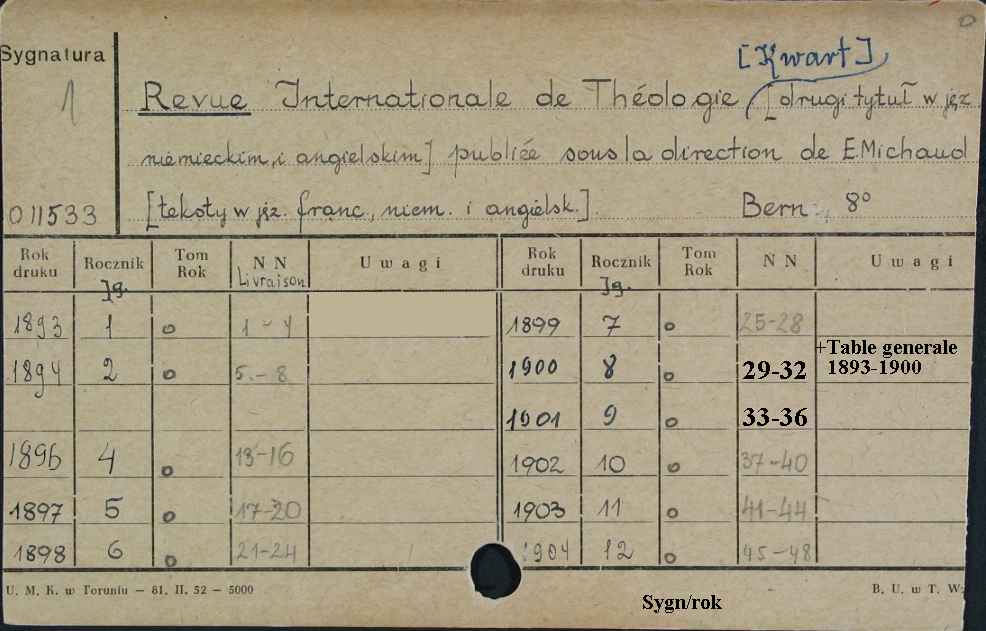 Sygnatura
1
[Kwart]
Revue Internationale de Théologie [drugi tytuł w jęz
niemieckim, i angielskim] publiée sous la direction de E. Michaud
011533
[teksty w jęz. franc, niem. i angielsk.]. Bern, 8°
Rok druku Rocznik Tom Rok N N Uwagi Rok druku Rocznik Tom Rok N N Uwagi
Jg. Livraison Jg.
1893 1 o 1-4 1899 7 o 25-28
1894 2 o 5.-8 1900 8 o 29-32 +Table generale 1893-1900
1901 9 o 33-36
1896 4 o 13-16 1902 10 o 37-40
1897 5 o 17-20 1903 11 o 41-44
1898 6 o 21-24 1904 12 o 45-48
U. M. K. w Toruniu — 81. II. 52 — 5000 B. U. w T. W:
Sygn/rok